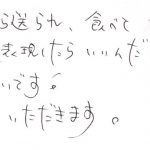 ら送られ、食べて
表現したらいいんだ
いです。
いただきます。